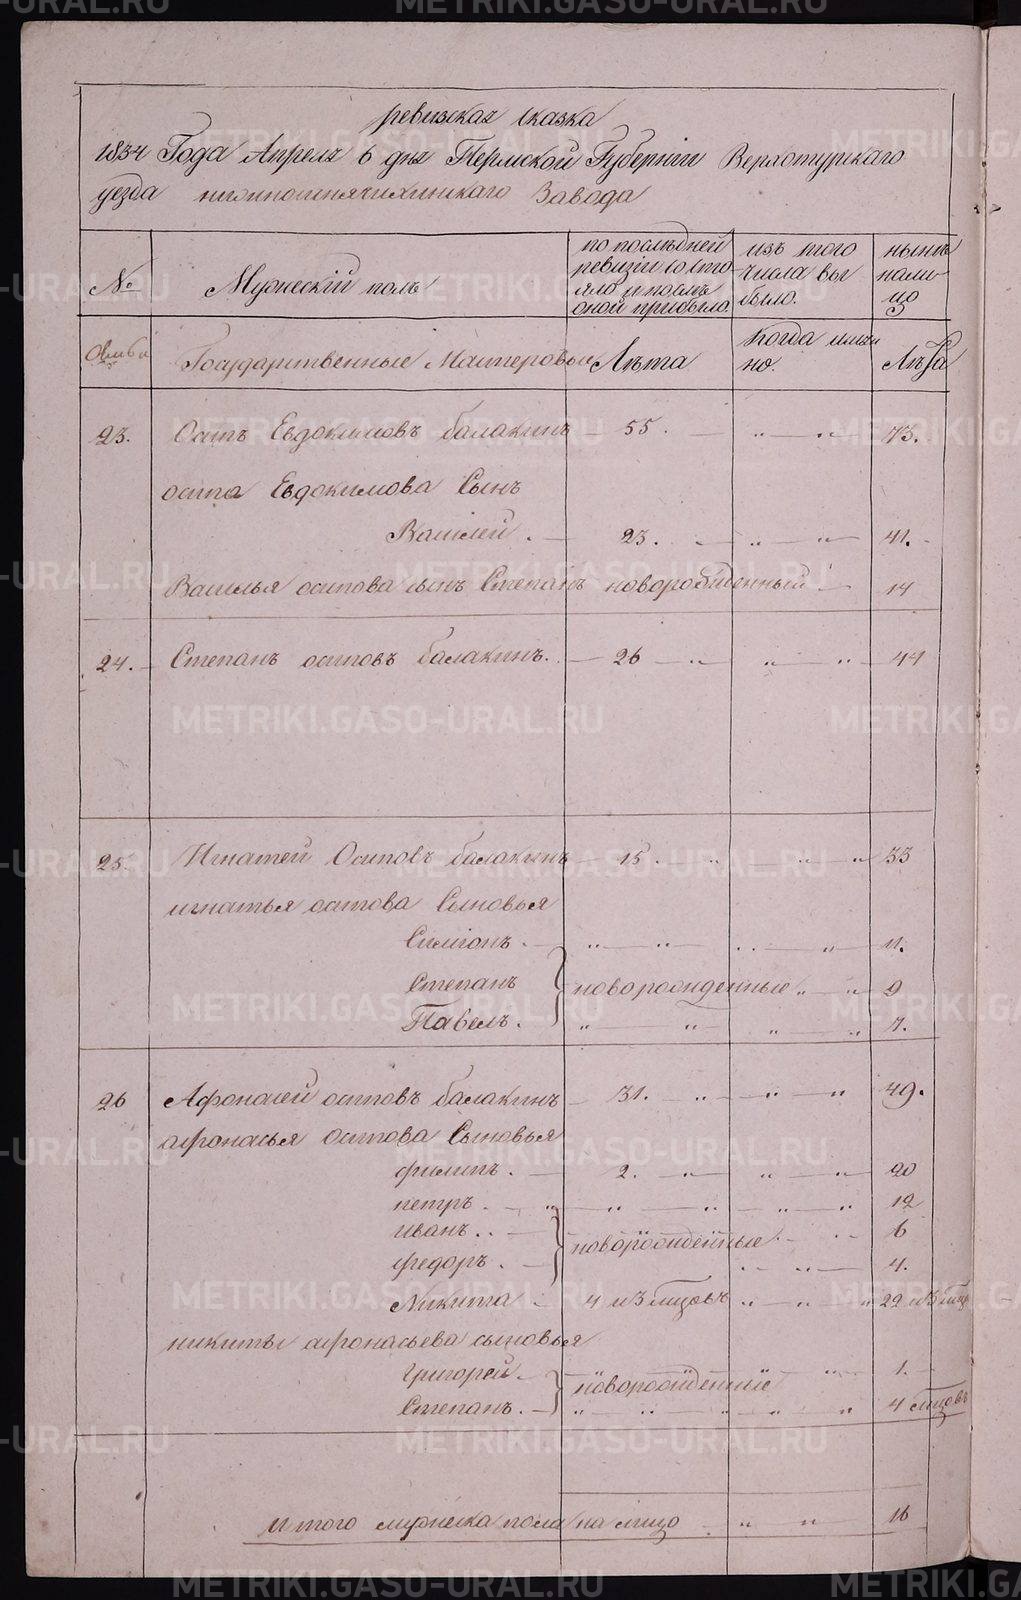 ревизская сказка
1834 Года Апреля 6 дня Пермской Губернии Верхотурскаго
уезда нижнесинячихинскаго Завода
№
Мужеский полъ
по последней ревизии состояло и после оной прибыло.
изъ того числа выбыло.
ныне налицо
Государственные Мастеровые
Лѣта
когда именно.
Лѣта
23. Осипъ Евдокимовъ балакинъ 55. 73.
осипа Евдокимова Сынъ
Василей. 23. 41.
Василья осипова сынъ Степанъ новорожденный 14
24. Степанъ осиповъ балакинъ. 26 44
25. Игнатей Осиповъ балакинъ 15. 33
игнатья осипова Сыновья
Симионъ. 11.
Степанъ новорожденные 9
Павелъ. 7.
26 Афонасей осиповъ балакинъ 31. 49.
афонасья осипова Сыновья
филипъ. 2. 20
петръ. 12
иванъ. новорожденные 6
федоръ. 4.
Никита 4 мѣсяцовъ
никиты афонасьева сыновья
григорей. новорожденные 1.
Степанъ. 4 мѣсяцовъ
итого мужеска пола на лицо 16
METRIKI.GASO-URAL.RU